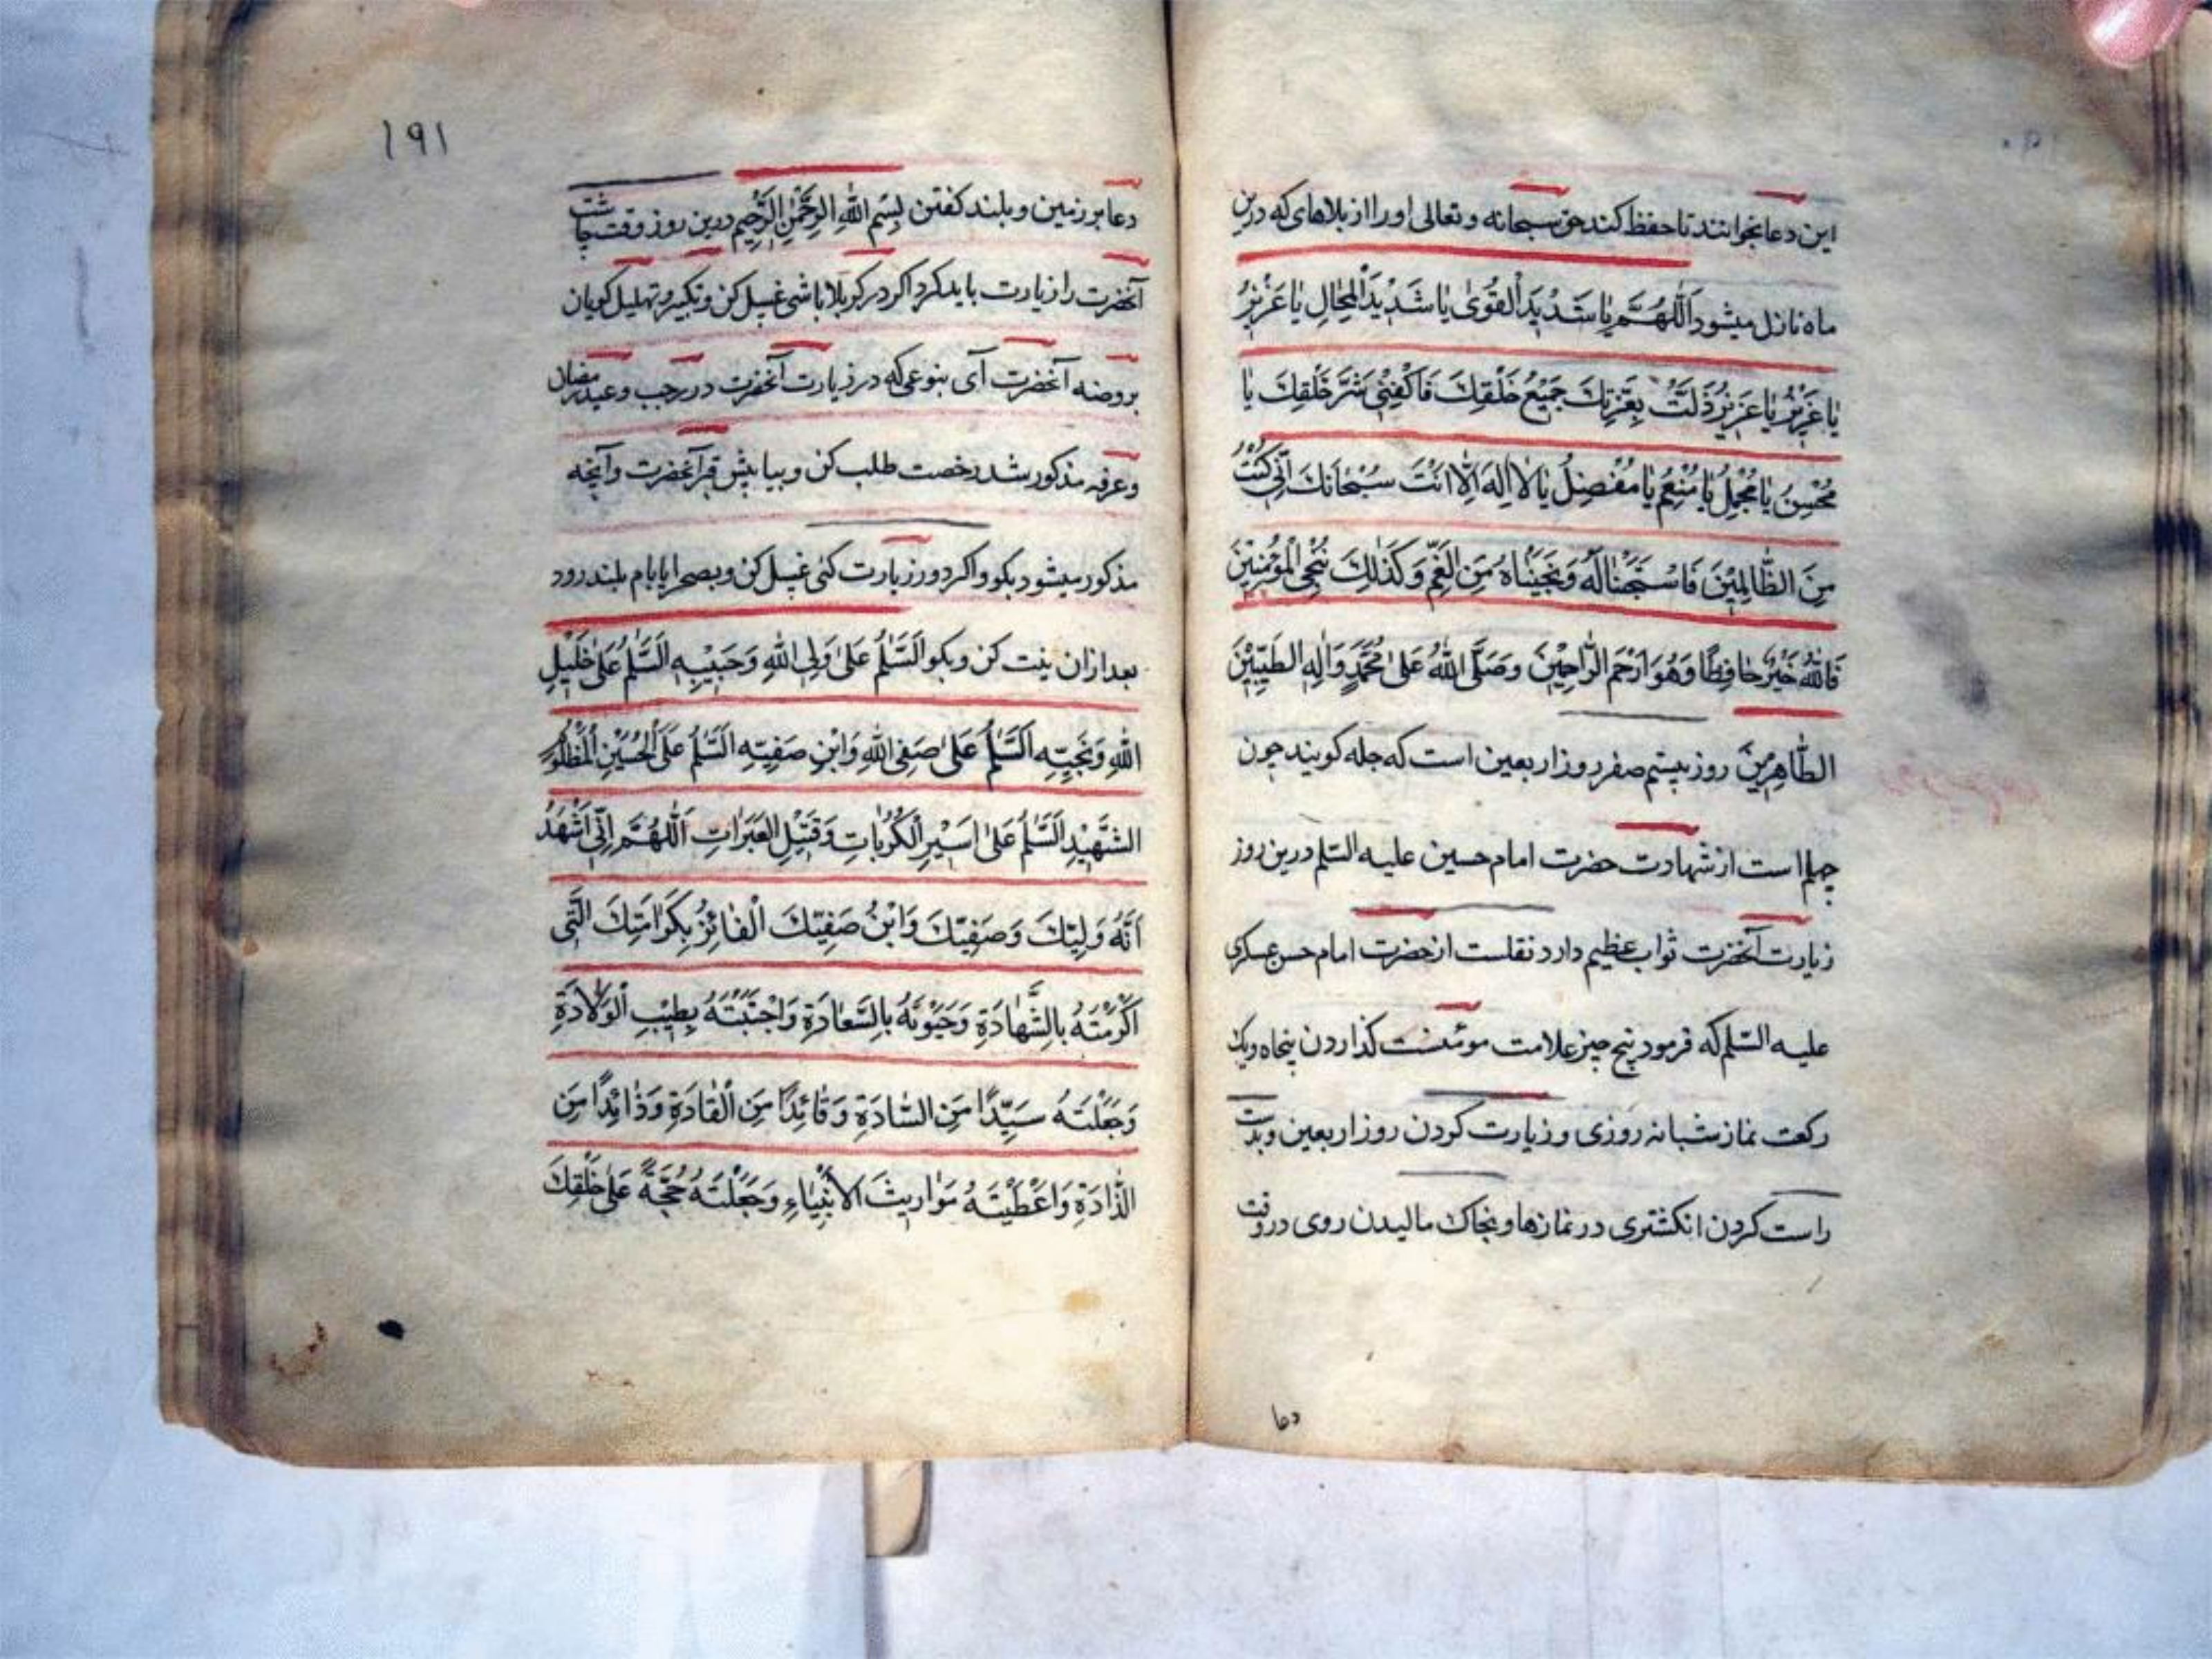 این دعا بخوانند تا حفظ کند حق سبحانه و تعالی او را از بلاهای که درین
ماه نازل میشود اَللّٰهُمَّ یَا شَدِیْدَ الْقُوٰی یَا شَدِیْدَ الْمِحَالِ یَا عَزِیْزُ
یَا عَزِیْزُ یَا عَزِیْزُ ذَلَّتْ بِعِزَّتِكَ جَمِیْعُ خَلْقِكَ فَاکْفِنِیْ شَرَّ خَلْقِكَ یَا
مُحْسِنُ یَا مُجْمِلُ یَا مُنْعِمُ یَا مُفْضِلُ یَا لَا اِلٰهَ اِلَّا اَنْتَ سُبْحَانَكَ اِنِّی کُنْتُ
مِنَ الظَّالِمِیْنَ فَاسْتَجَبْنَا لَهُ وَنَجَّیْنَاهُ مِنَ الْغَمِّ وَکَذٰلِكَ نُنْجِی الْمُؤْمِنِیْنَ
فَاللّٰهُ خَیْرٌ حَافِظًا وَهُوَ اَرْحَمُ الرَّاحِمِیْنَ وَصَلَّی اللّٰهُ عَلٰی مُحَمَّدٍ وَاٰلِهِ الطَّیِّبِیْنَ
الطَّاهِرِیْنَ روز بیستم صفر روز اربعین است که چله کویند چون
چهلم است از شهادت حضرت امام حسین علیه السّلم درین روز
زیارت آنحضرت ثواب عظیم دارد نقلست از حضرت امام حسن عسکری
علیه السّلم که فرمود پنج چیز علامت مؤمنست کذاردن پنجاه ویك
رکعت نماز شبانه روزی و زیارت کردن روز اربعین و بدست
راست کردن انکشتری در نمازها و بخاك مالیدن روی در وقت
دعا
۱۹۱
دعا بر زمین و بلند کفتن بِسْمِ اللّٰهِ الرَّحْمٰنِ الرَّحِیْمِ درین روز وقت چاشت
آنحضرت را زیارت باید کرد اکر در کربلا باشی غسل کن و تکبیر و تهلیل کویان
بروضه آنحضرت آی بنوعی که در زیارت آنحضرت در رجب و عید رمضان
و عرفه مذکور شد رخصت طلب کن و بیا پیش قبر آنحضرت و آنچه
مذکور میشود بکو و اکر دور زیارت کنی غسل کن و بصحرا یا بام بلند رو و
بعد ازان نیت کن و بکو اَلسَّلٰمُ عَلٰی وَلِیِّ اللّٰهِ وَحَبِیْبِهِ اَلسَّلٰمُ عَلٰی خَلِیْلِ
اللّٰهِ وَنَجِیْبِهِ اَلسَّلٰمُ عَلٰی صَفِیِّ اللّٰهِ وَابْنِ صَفِیِّهِ اَلسَّلٰمُ عَلَی الْحُسَیْنِ الْمَظْلُوْمِ
الشَّهِیْدِ اَلسَّلٰمُ عَلٰی اَسِیْرِ الْکُرُبَاتِ وَقَتِیْلِ الْعَبَرَاتِ اَللّٰهُمَّ اِنِّی اَشْهَدُ
اَنَّهُ وَلِیُّكَ وَصَفِیُّكَ وَابْنُ صَفِیِّكَ الْفَائِزُ بِکَرَامَتِكَ الَّتِی
اَکْرَمْتَهُ بِالشَّهَادَةِ وَحَبَوْتَهُ بِالسَّعَادَةِ وَاجْتَبَیْتَهُ بِطِیْبِ الْوِلَادَةِ
وَجَعَلْتَهُ سَیِّدًا مِنَ السَّادَةِ وَقَائِدًا مِنَ الْقَادَةِ وَذَائِدًا مِنَ
الذَّادَةِ وَاَعْطَیْتَهُ مَوَارِیْثَ الْاَنْبِیَاءِ وَجَعَلْتَهُ حُجَّةً عَلٰی خَلْقِكَ